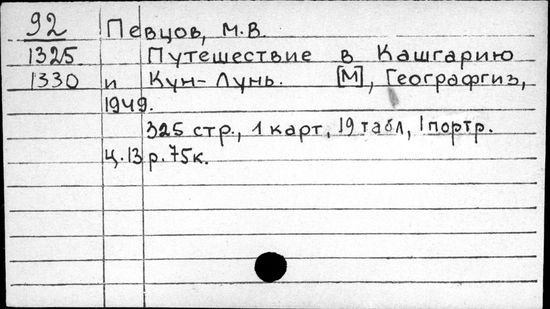 92 Певцов, М.В.
1325 Путешествие в Кашгарию
1330 и Кун-Лунь. [М], Географгиз,
1949.
325 стр., 1 карт, 19 табл, 1 портр.
ц. 13 р. 75 к.